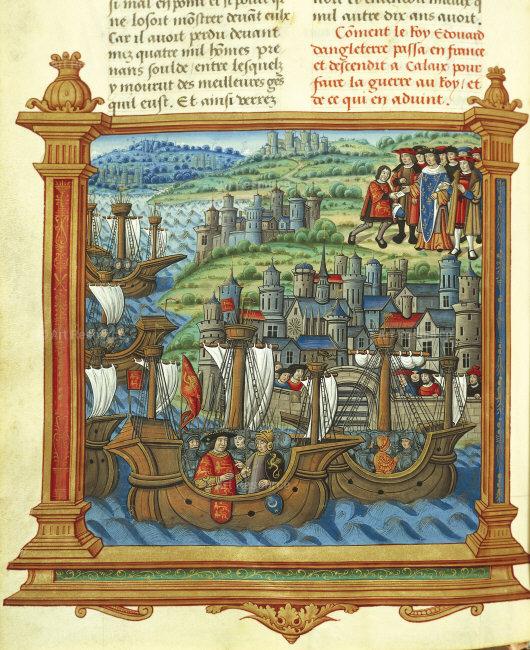 si mal en point et si poure qͥl
ne losoit mõstrer deuãt eulx
Car il auoit perdu deuant
mez quatre mil hõmes pre
nans soulde / entre lesquelz
y mourut des meilleurs gẽs
quil eust. Et ainsi verrez
mil autre dix ans auoit.
Cõment le Roy Edouard
dangleterre passa en france
et descendit a Calaix pour
faire la guerre au Roy / et
de ce qui en aduint.